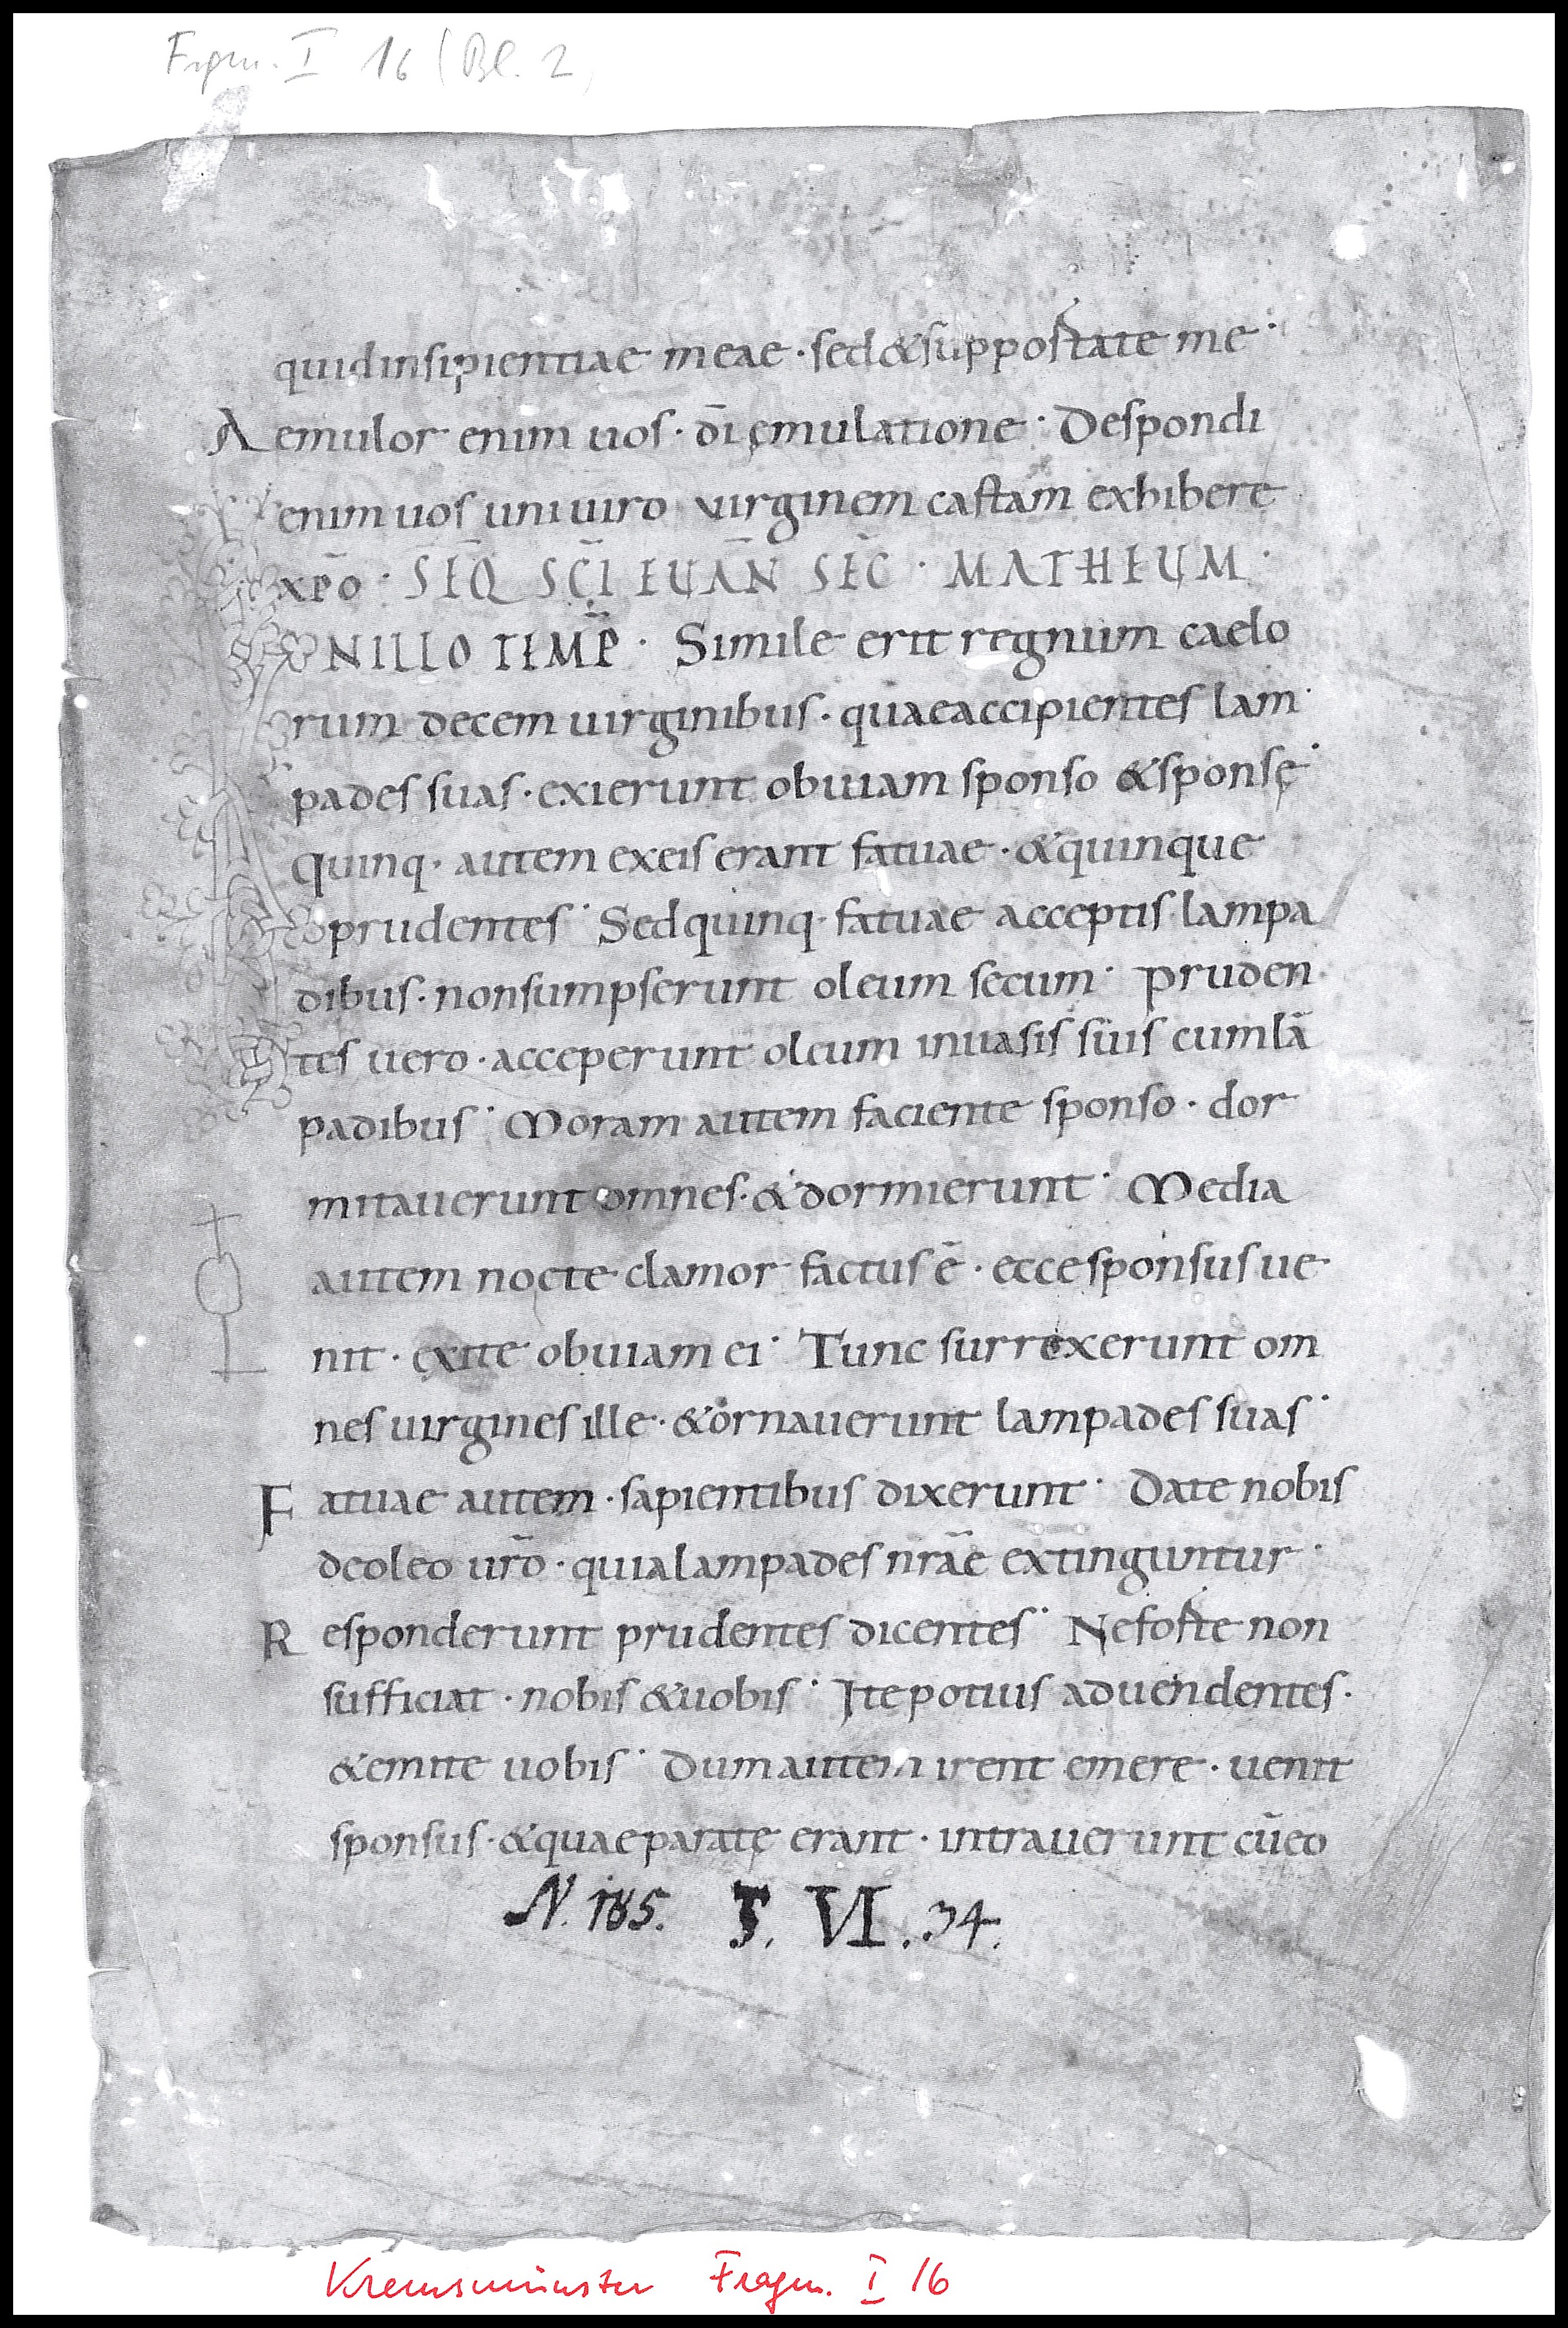 Fragm. I 16 (Bl. 2
quid insipientiae meae · sed & suppostate me ·
Aemulor enim uos · dī ęmulatione · Despondi
enim uos uni uiro virginem castam exhibere
xp̄o · SEQ̄ SC̄I EUAN̄ SEC̄ · MATHEUM ·
INILLO TEMP̄ · Simile erit regnum caelo
rum decem uirginibus · quae accipientes lam
pades suas · exierunt obuiam sponso & sponsę ·
Quinq· autem ex eis erant fatuae · & quinque
prudentes · Sed quinq· fatuae acceptis lampa
dibus · non sumpserunt oleum secum · pruden
tes uero · acceperunt oleum in uasis suis cum lā
padibus · Moram autem faciente sponso · dor
mitauerunt omnes · & dormierunt · Media
autem nocte clamor factus ē · ecce sponsus ue
nit · exite obuiam ei · Tunc surrexerunt om
nes uirgines ille · & ornauerunt lampades suas ·
Fatuae autem · sapientibus dixerunt · Date nobis
de oleo ur̄o · quia lampades nr̄ae extinguntur ·
Responderunt prudentes dicentes · Ne foste non
sufficiat · nobis & uobis · Ite potius ad uendentes ·
& emite uobis · Dum autem irent emere · uenit
sponsus · & quae paratę erant · intrauerunt cū eo
N. 185. T. VI. 34.
Kremsmünster Fragm. I 16